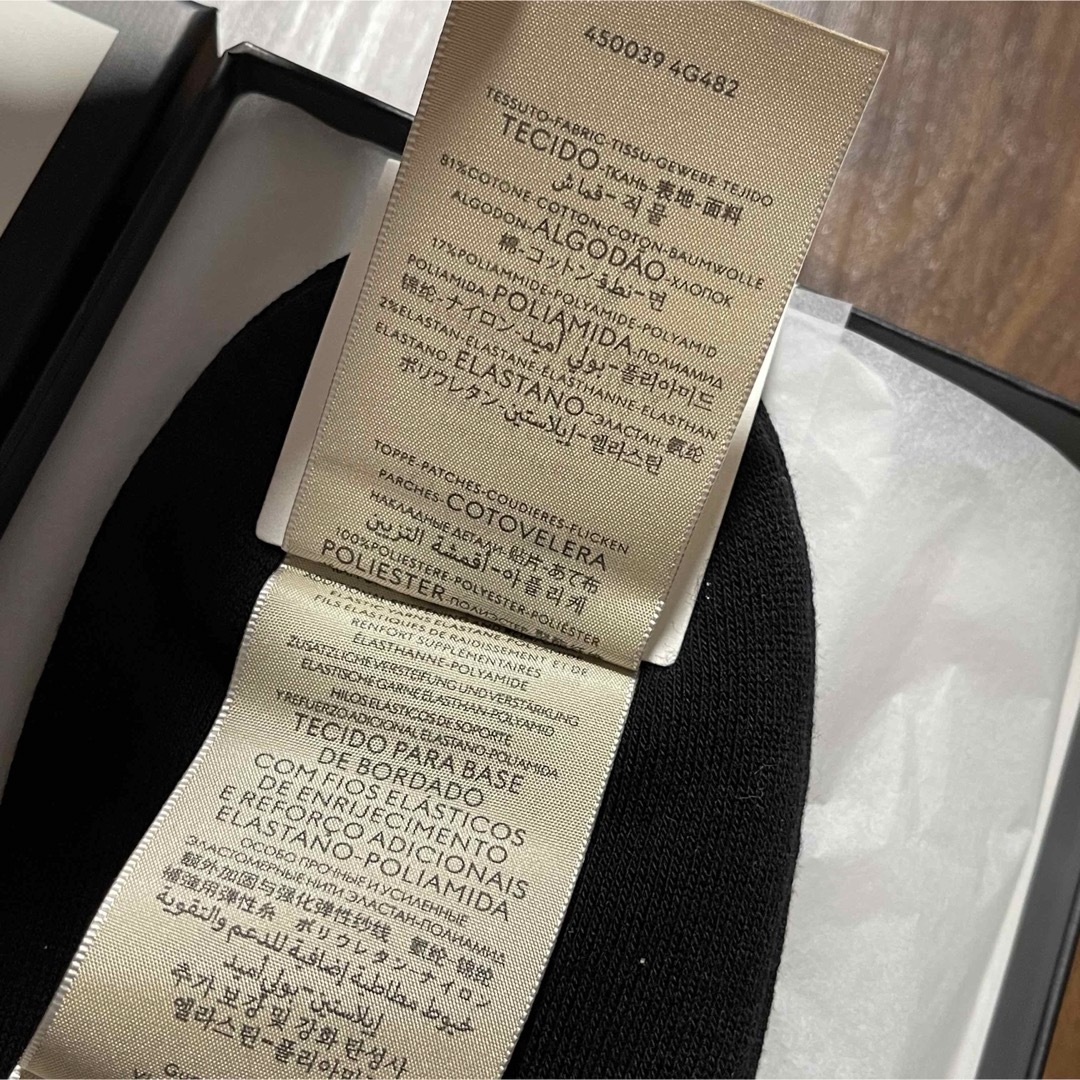 450039 4G482
TESSUTO-FABRIC-TISSU-GEWEBE-TEJIDO
TECIDO-ТКАНЬ-表地-面料
قماش-직물
81%COTONE-COTTON-COTON-BAUMWOLLE
ALGODON-ALGODÃO-ХЛОПОК
棉-コットン-قطن-면
17%POLIAMMIDE-POLYAMIDE-POLYAMID
POLIAMIDA-POLIAMIDA-ПОЛИАМИД
锦纶-ナイロン-بولي أميد-폴리아미드
2%ELASTAN-ELASTANE-ÉLASTHANNE-ELASTHAN
ELASTANO-ELASTANO-ЭЛАСТАН-氨纶
ポリウレタン-إيلاستين-엘라스틴
TOPPE-PATCHES-COUDIERES-FLICKEN
PARCHES-COTOVELERA
НАКЛАДНЫЕ ДЕТАЛИ-贴片-あて布
أقمشة التزيين-아플리케
100%POLIESTERE-POLYESTER-POLIÉSTER
POLIÉSTER
FILS ÉLASTIQUES DE RAIDISSEMENT ET DE
RENFORT SUPPLÉMENTAIRES
ÉLASTHANNE-POLYAMIDE
ZUSÄTZLICHE VERSTEIFUNG UND VERSTÄRKUNG
ELASTISCHE GARNE ELASTHAN-POLYAMID
HILOS ELÁSTICOS DE SOPORTE
Y REFUERZO ADICIONAL ELASTANO-POLIAMIDA
TECIDO PARA BASE
DE BORDADO
COM FIOS ELÁSTICOS
DE ENRIJECIMENTO
E REFORÇO ADICIONAIS
ELASTANO-POLIAMIDA
ОСОБО ПРОЧНЫЕ И УСИЛЕННЫЕ
ЭЛАСТОМЕРНЫЕ НИТИ ЭЛАСТАН-ПОЛИАМИД
额外加固与强化弹性纱线 氨纶 锦纶
補強用弾性糸 ポリウレタン-ナイロン
خيوط مطاطية إضافية للدعم والتقوية
إيلاستين-بولي أميد
추가 보강 및 강화 탄성사
엘라스틴-폴리아미드